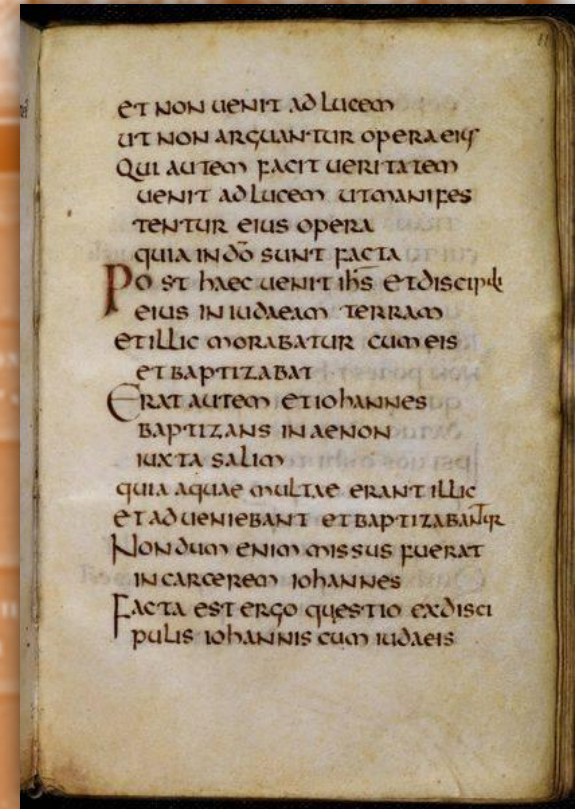 11
et non uenit ad lucem
ut non arguantur opera eius
Qui autem facit ueritatem
uenit ad lucem ut manifes
tentur eius opera
quia in dō sunt facta
Post haec uenit ihs̄ et discipuli
eius in iudaeam terram
et illic morabatur cum eis
et baptizabat
Erat autem et iohannes
baptizans in aenon
iuxta salim
quia aquae multae erant illic
et adueniebant et baptizabantur
Nondum enim missus fuerat
in carcerem iohannes
Facta est ergo questio ex disci
pulis iohannis cum iudaeis